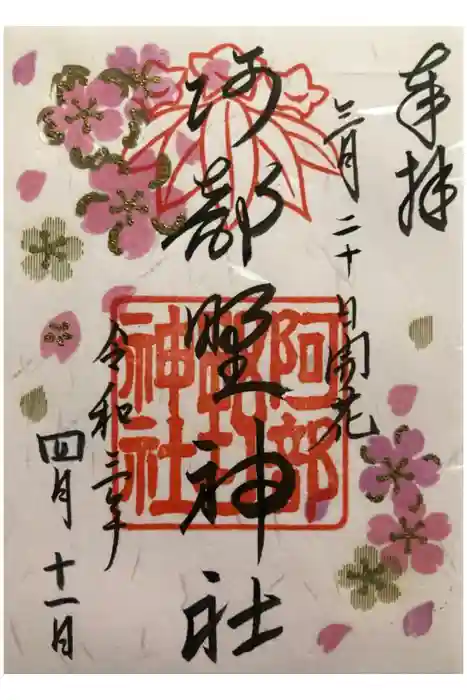 奉拝
三月二十日開花
阿部野神社
令和三年
四月十一日
阿部
神社